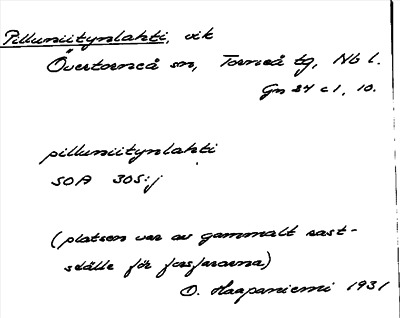 Pilluniitynlahti, vik
Övertorneå sn, Torneå tg, Nb l.
Gn 37 c 1, 10.
pilluniitynlahti
SOA 305:j
(platsen var av gammalt rast-
ställe för forsfararna)
O. Haapaniemi 1931